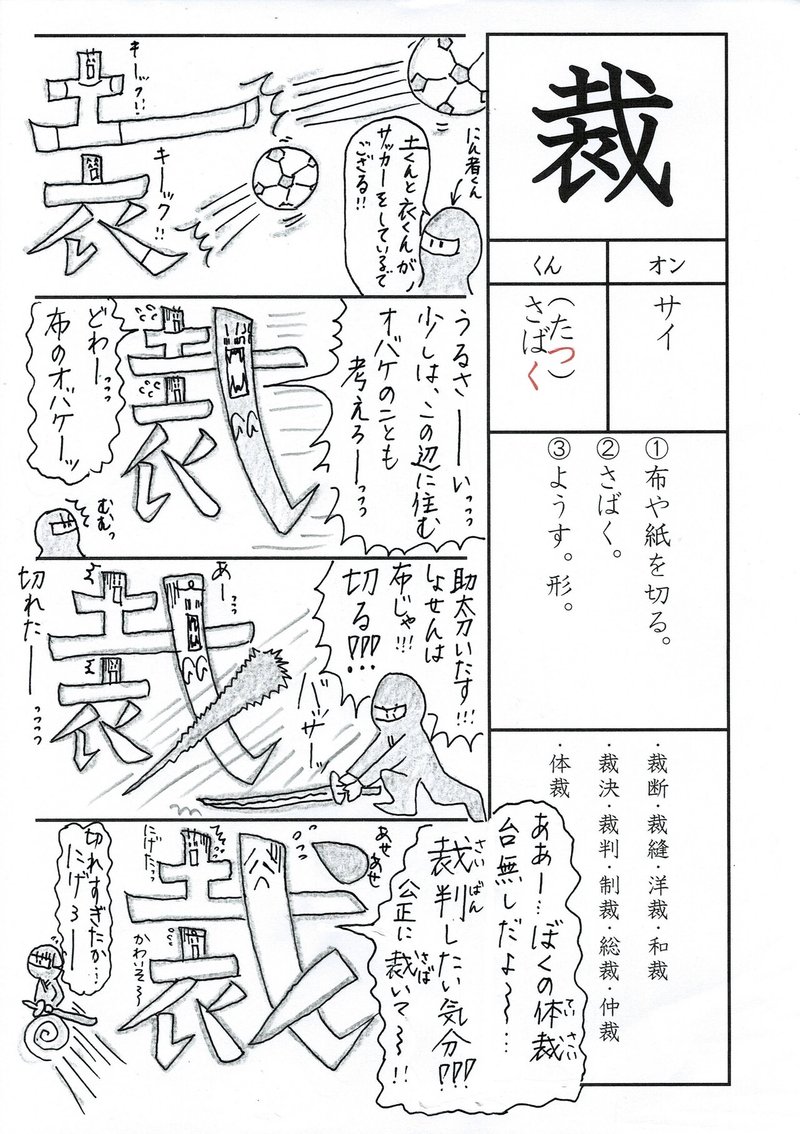 裁
オン
くん
サイ
(たつ)
さばく
①布や紙を切る。
②さばく。
③ようす。形。
・裁断・裁縫・洋裁・和裁
・裁決・裁判・制裁・総裁・仲裁
・体裁
にん者くん
土くんと衣くんが、
サッカーをしているで
ござる!!
キーック!!
キーック!!
うるさーーいっっっ
少しは、この辺に住む
オバケのことも
考えろーっっっ
どわーーっっっ
布のオバケーーッ
むむっ
助太刀いたす!!!
しょせんは
布じゃ!!!
切る!!!
バッサー
あーっっっ
切れたーーっっっっ
ああー…ぼくの体裁
ていさい
台無しだよ〜〜…
裁判したい気分!!!
さいばん
公正に裁いて〜〜!!
さば
あせあせ
そそそっ
にげたっっ
かわいそ〜
切れすぎたか…
にげろーー